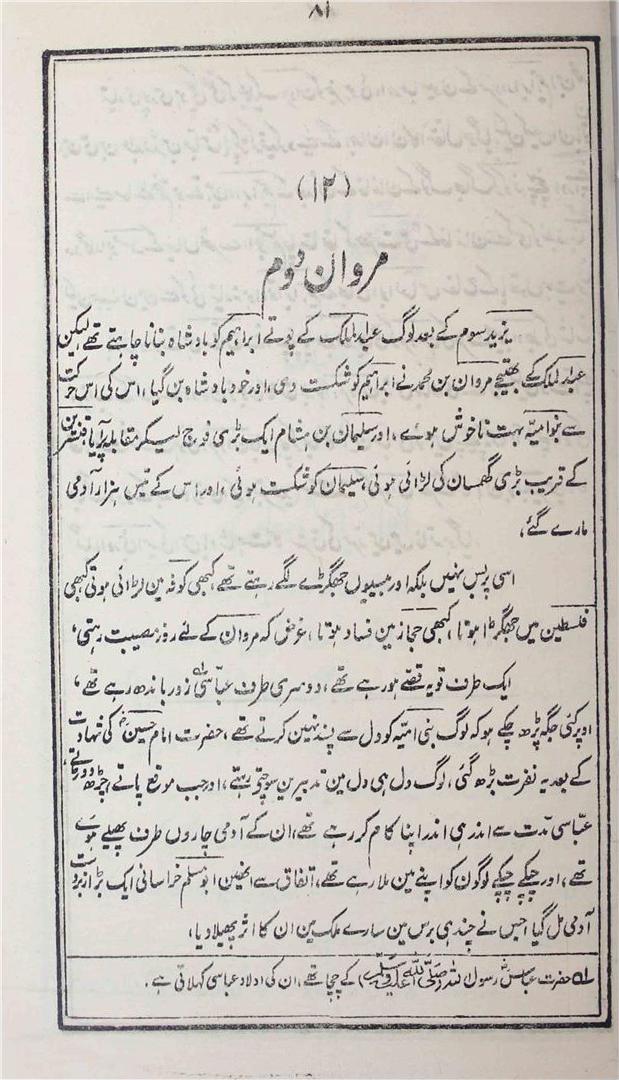 ۸۱
(۱۳)
مروان دوم
یزید سوم کے بعد لوگ عبدالملک کے پوتے ابراہیم کو بادشاہ بنانا چاہتے تھے لیکن
عبدالملک کے بھتیجے مروان بن محمد نے ابراہیم کو شکست دی، اور خود بادشاہ بن گیا، اس کی اس حرکت
سے بنوامیہ بہت ناخوش ہوئے، اور سلیمان بن ہشام ایک بڑی فوج لیکر مقابلہ پر آیا، قنسرین
کے قریب بڑی گھمسان کی لڑائی ہوئی، سلیمان کو شکست ہوئی، اور اس کے تیس ہزار آدمی
مارے گئے،
اسی پر بس نہیں بلکہ اور بیسیوں جھگڑے لگے رہتے تھے، کبھی کوفہ مین لڑائی ہوتی کبھی
فلسطین میں جھگڑا ہوتا، کبھی حجاز مین فساد ہوتا، غرض کہ مروان کے لئے روز مصیبت رہتی،
ایک طرف تو یہ قصے ہو رہے تھے، دوسری طرف عباسی۱؎ زور باندھ رہے تھے،
اوپر کئی جگہ پڑھ چکے ہو کہ لوگ بنی امیہ کو دل سے پسند نہین کرتے تھے، حضرت امام حسینؓ کی شہادت
کے بعد یہ نفرت بڑھ گئی، لوگ دل ہی دل مین تدبیرین سوچتے رہتے، اور جب موقع پاتے، چڑھ دوڑتے،
عباسی مدت سے اندر ہی اندر اپنا کام کر رہے تھے، ان کے آدمی چاروں طرف پھیلے ہوے
تھے، اور چپکے چپکے لوگون کو اپنے مین ملا رہے تھے، اتفاق سے انھین ابو مسلم خراسانی ایک بڑا زبردست
آدمی مل گیا جس نے چند ہی برس مین سارے ملک مین ان کا اثر پھیلا دیا،
۱؎ حضرت عباسؓ رسول اللہ (صلی اللہ علیہ وسلم) کے چچا تھے، ان کی اولاد عباسی کہلاتی ہے.